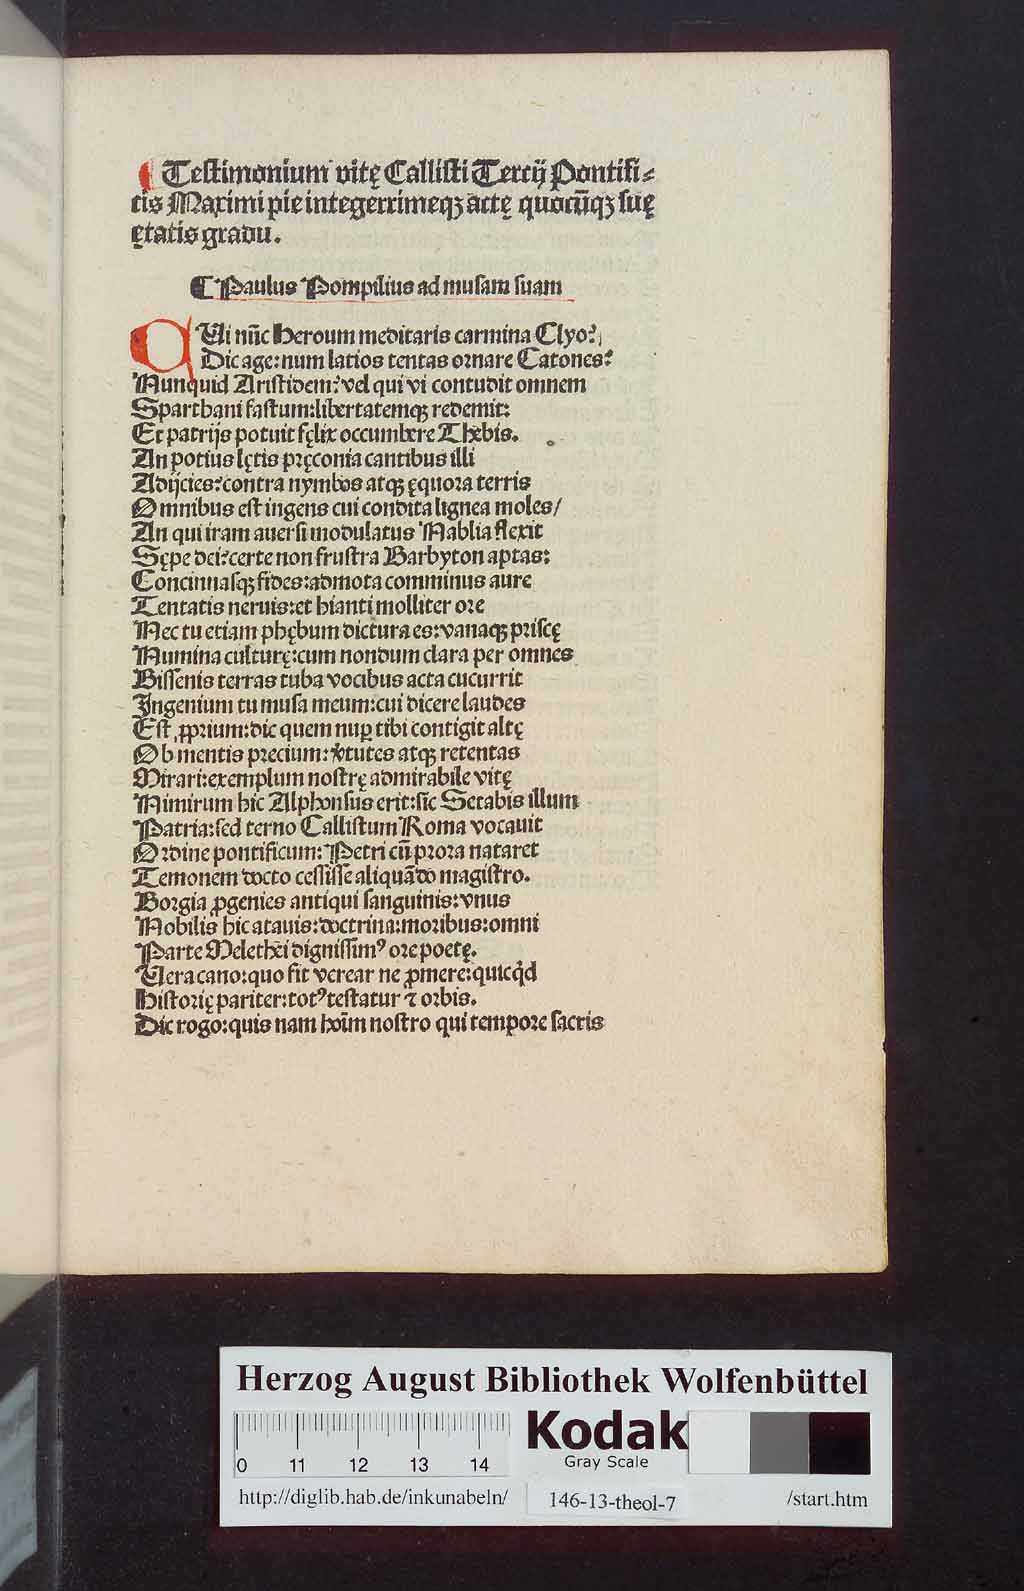 ¶ Testimonium vitę Callisti Tercij Pontifi⸗
cis Maximi pie integerrimeqꝫ actę quocūqꝫ suę
ętatis gradu.
¶ Paulus Pompilius ad musam suam
QUi nūc Heroum meditaris carmina Clyo?
Dic age: num latios tentas ornare Catones?
Nunquid Aristidem? vel qui vi contudit omnem
Sparthani fastum: libertatemqꝫ redemit:
Et patrijs potuit fęlix occumbere Thebis.
An potius lętis pręconia cantibus illi
Adijcies? contra nymbos atqꝫ ęquora terris
Omnibus est ingens cui condita lignea moles/
An qui iram auersi modulatus Nablia flexit
Sępe dei? certe non frustra Barbyton aptas:
Concinnasqꝫ fides: admota comminus aure
Tentatis neruis: et hianti molliter ore
Nec tu etiam phębum dictura es: vanaqꝫ priscę
Numina culturę: cum nondum clara per omnes
Bissenis terras tuba vocibus acta cucurrit
Ingenium tu musa meum: cui dicere laudes
Est ꝓprium: dic quem nuꝑ tibi contigit altę
Ob mentis precium: v̓tutes atqꝫ retentas
Mirari: exemplum nostrę admirabile vitę
Nimirum hic Alphonsus erit: sic Setabis illum
Patria: sed terno Callistum Roma vocauit
Ordine pontificum: Petri cū prora nataret
Temonem docto cessisse aliquādo magistro.
Borgia ꝓgenies antiqui sanguinis: vnus
Nobilis hic atauis: doctrina: moribus: omni
Parte Melethei dignissimꝰ ore poetę.
Uera cano: quo fit verear ne ꝓmere: quicq̇d
Historię pariter: totꝰ testatur ⁊ orbis.
Dic rogo: quis nam hoīm nostro qui tempore sacris
Herzog August Bibliothek Wolfenbüttel
0 11 12 13 14
Kodak
Gray Scale
http://diglib.hab.de/inkunabeln/ 146-13-theol-7 /start.htm